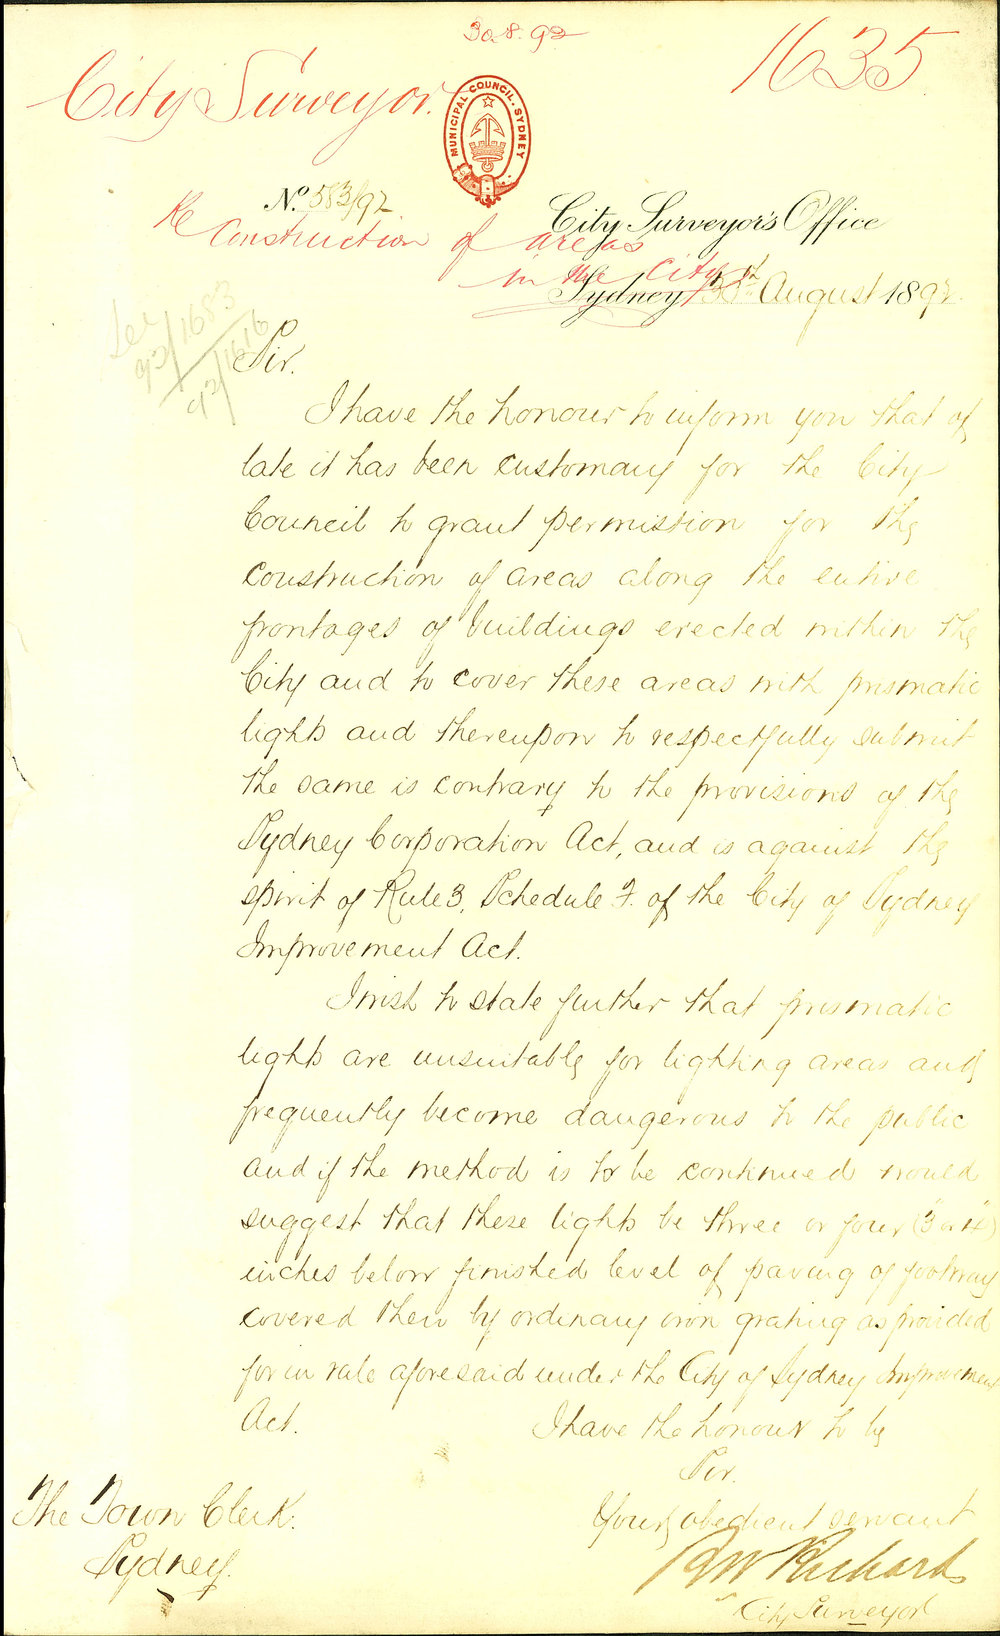 30.8.92
1635
City Surveyor.
MUNICIPAL COUNCIL. SYDNEY
No. 583/92
City Surveyor's Office
Re Construction of areas
in the City
Sydney, 30th August 1892
See
92/1683
92/1616
Sir.
I have the honour to inform you that of
late it has been customary for the City
Council to grant permission for the
construction of areas along the entire
frontages of buildings erected within the
City and to cover these areas with prismatic
lights and thereupon to respectfully submit
the same is contrary to the provisions of the
Sydney Corporation Act, and is against the
spirit of Rule 3, Schedule F. of the City of Sydney
Improvement Act.
I wish to state further that prismatic
lights are unsuitable for lighting areas and
frequently become dangerous to the public
and if the method is to be continued would
suggest that these lights be three or four (3" or 4")
inches below finished level of paving of footway
covered then by ordinary iron grating as provided
for in rule aforesaid under the City of Sydney Improvement
Act.
I have the honour to be
Sir.
Your obedient servant
The Town Clerk.
Sydney.
R W Richards
City Surveyor